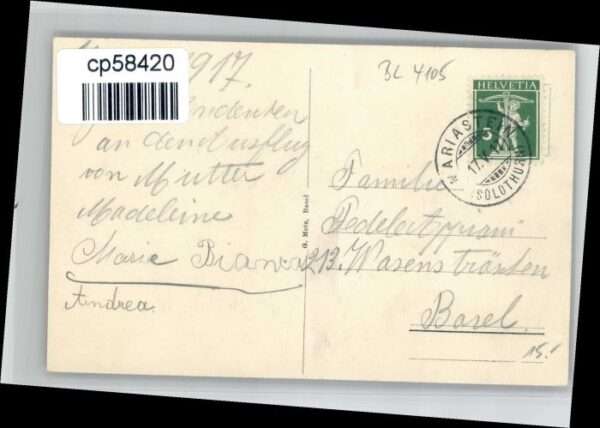 cp58420
1917.
Andenken
an den Ausflug
von Mutter
Madeleine
Marie Bianca
Andrea
G. Metz, Basel
BL 4105
HELVETIA
5
MARIASTEIN
(SOLOTHURN)
Familie
213. Wasensträsten
Basel.
15.-